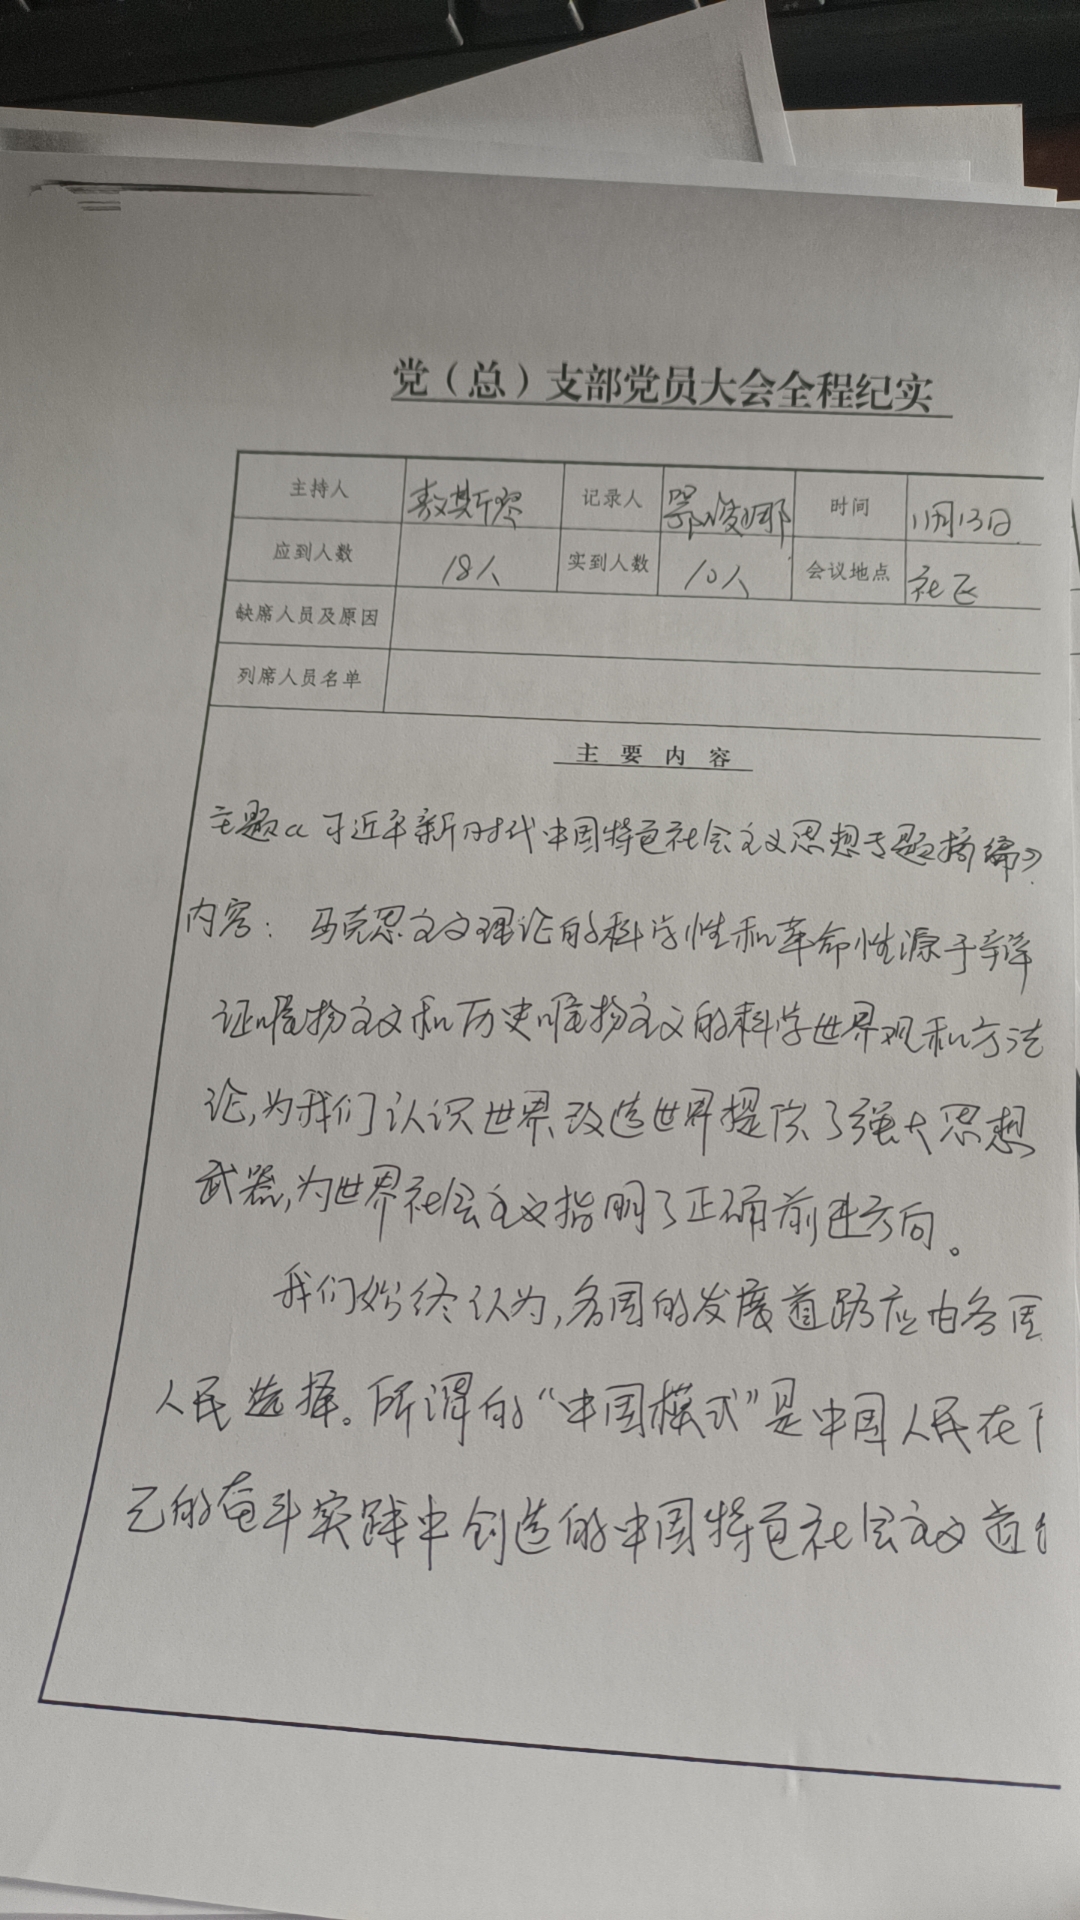 党（总）支部党员大会全程纪实
主持人 敖斯琴 记录人 鄂俊娜 时间 11月13日
应到人数 18人 实到人数 10人 会议地点 社区
缺席人员及原因
列席人员名单
主要内容
主题《习近平新时代中国特色社会主义思想专题摘编》
内容：马克思主义理论的科学性和革命性源于辩
证唯物主义和历史唯物主义的科学世界观和方法
论,为我们认识世界、改造世界提供了强大思想
武器,为世界社会主义指明了正确前进方向。
我们始终认为,各国的发展道路应由各国
人民选择。所谓的“中国模式”是中国人民在
己的奋斗实践中创造的中国特色社会主义道